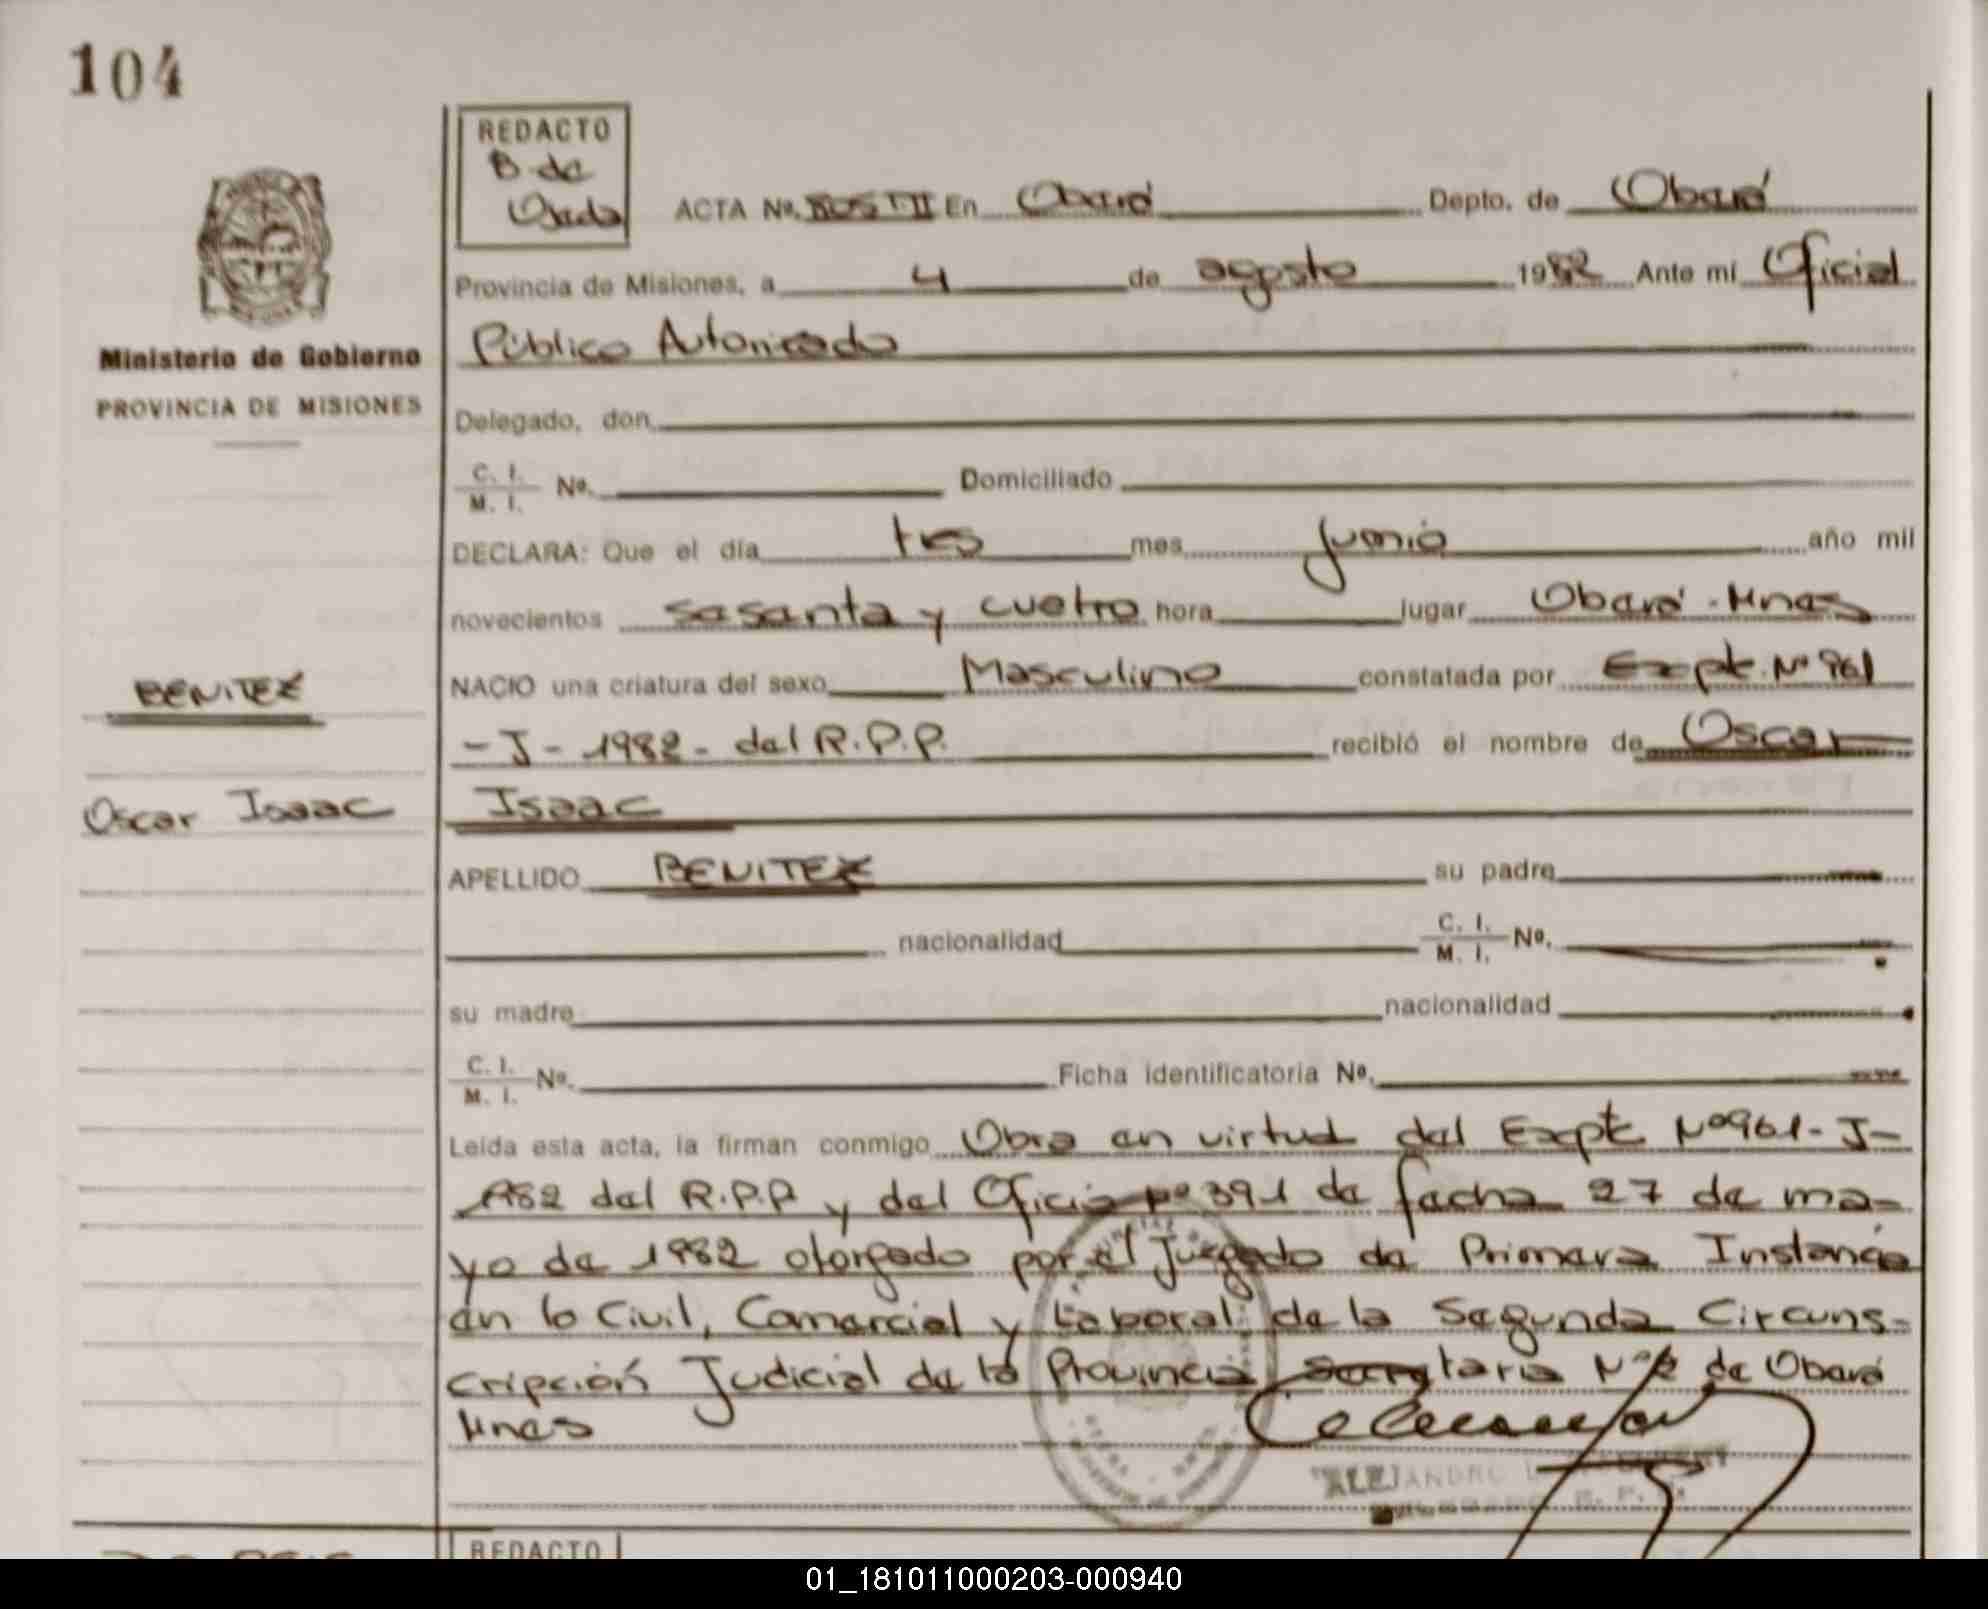 104
REDACTO
B. de
ACTA Nº. En Oberá Depto. de Oberá
Provincia de Misiones, a 4 de agosto 1982 Ante mí Oficial
Público Autorizado
Ministerio de Gobierno
PROVINCIA DE MISIONES
Delegado, don
C. I.
M. I. Nº. Domiciliado
DECLARA: Que el día tres mes junio año mil
novecientos sesenta y cuatro hora lugar Oberá - Mnes
BENITEZ
NACIO una criatura del sexo Masculino constatada por Expte. Nº 961
- J - 1982 - del R.P.P. recibió el nombre de Oscar
Oscar Isaac
Isaac
APELLIDO BENITEZ su padre
nacionalidad C. I.
M. I. Nº.
su madre nacionalidad
C. I.
M. I. Nº. Ficha identificatoria Nº.
Leída esta acta, la firman conmigo Obra en virtud del Expte Nº 961 - J -
1982 del R.P.P y del Oficio nº 391 de fecha 27 de ma-
yo de 1982 otorgado por el Juzgado de Primera Instancia
en lo Civil, Comercial y Laboral de la Segunda Circuns-
cripción Judicial de la Provincia Secretaria Nº 2 de Oberá
Mnes
ALEJANDRO
REDACTO
01_181011000203-000940